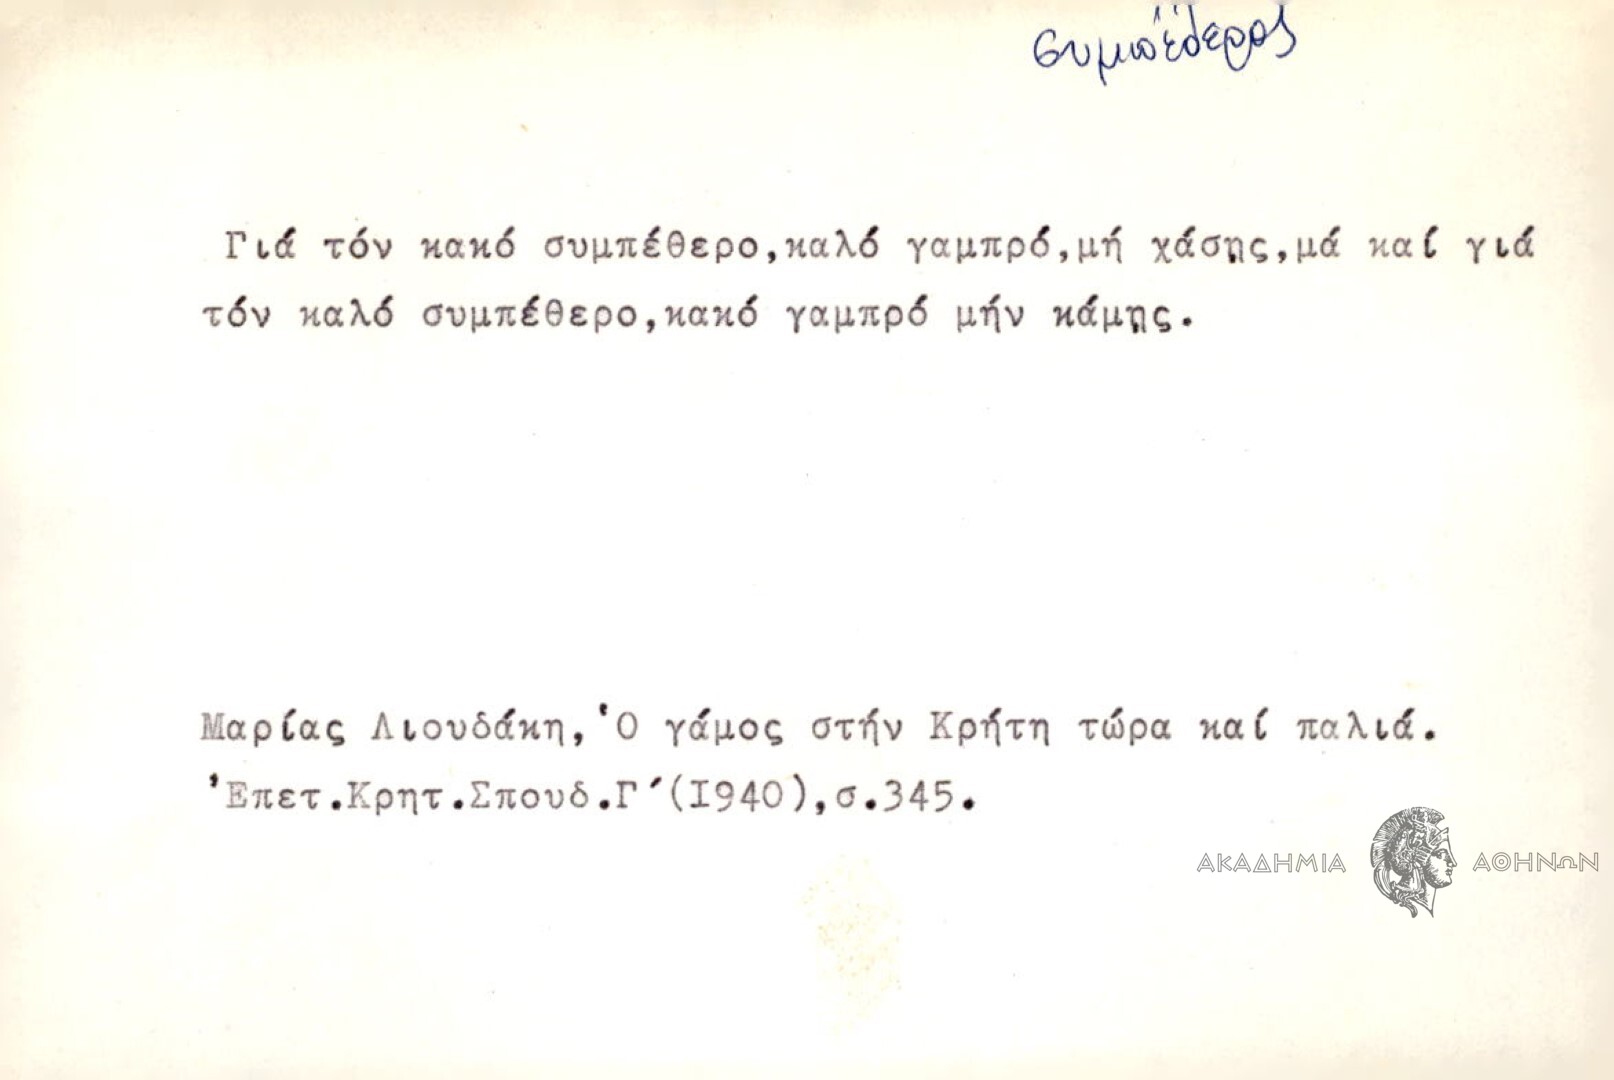 συμπέθερος
Γιά τόν κακό συμπέθερο,καλό γαμπρό,μή χάσῃς,μά καί γιά
τόν καλό συμπέθερο,κακό γαμπρό μήν κάμῃς.
Μαρίας Λιουδάκη,Ὁ γάμος στήν Κρήτη τώρα καί παλιά.
Ἐπετ.Κρητ.Σπουδ.Γ΄(I940),σ.345.
ΑΚΑΔΗΜΙΑ ΑΘΗΝΩΝ